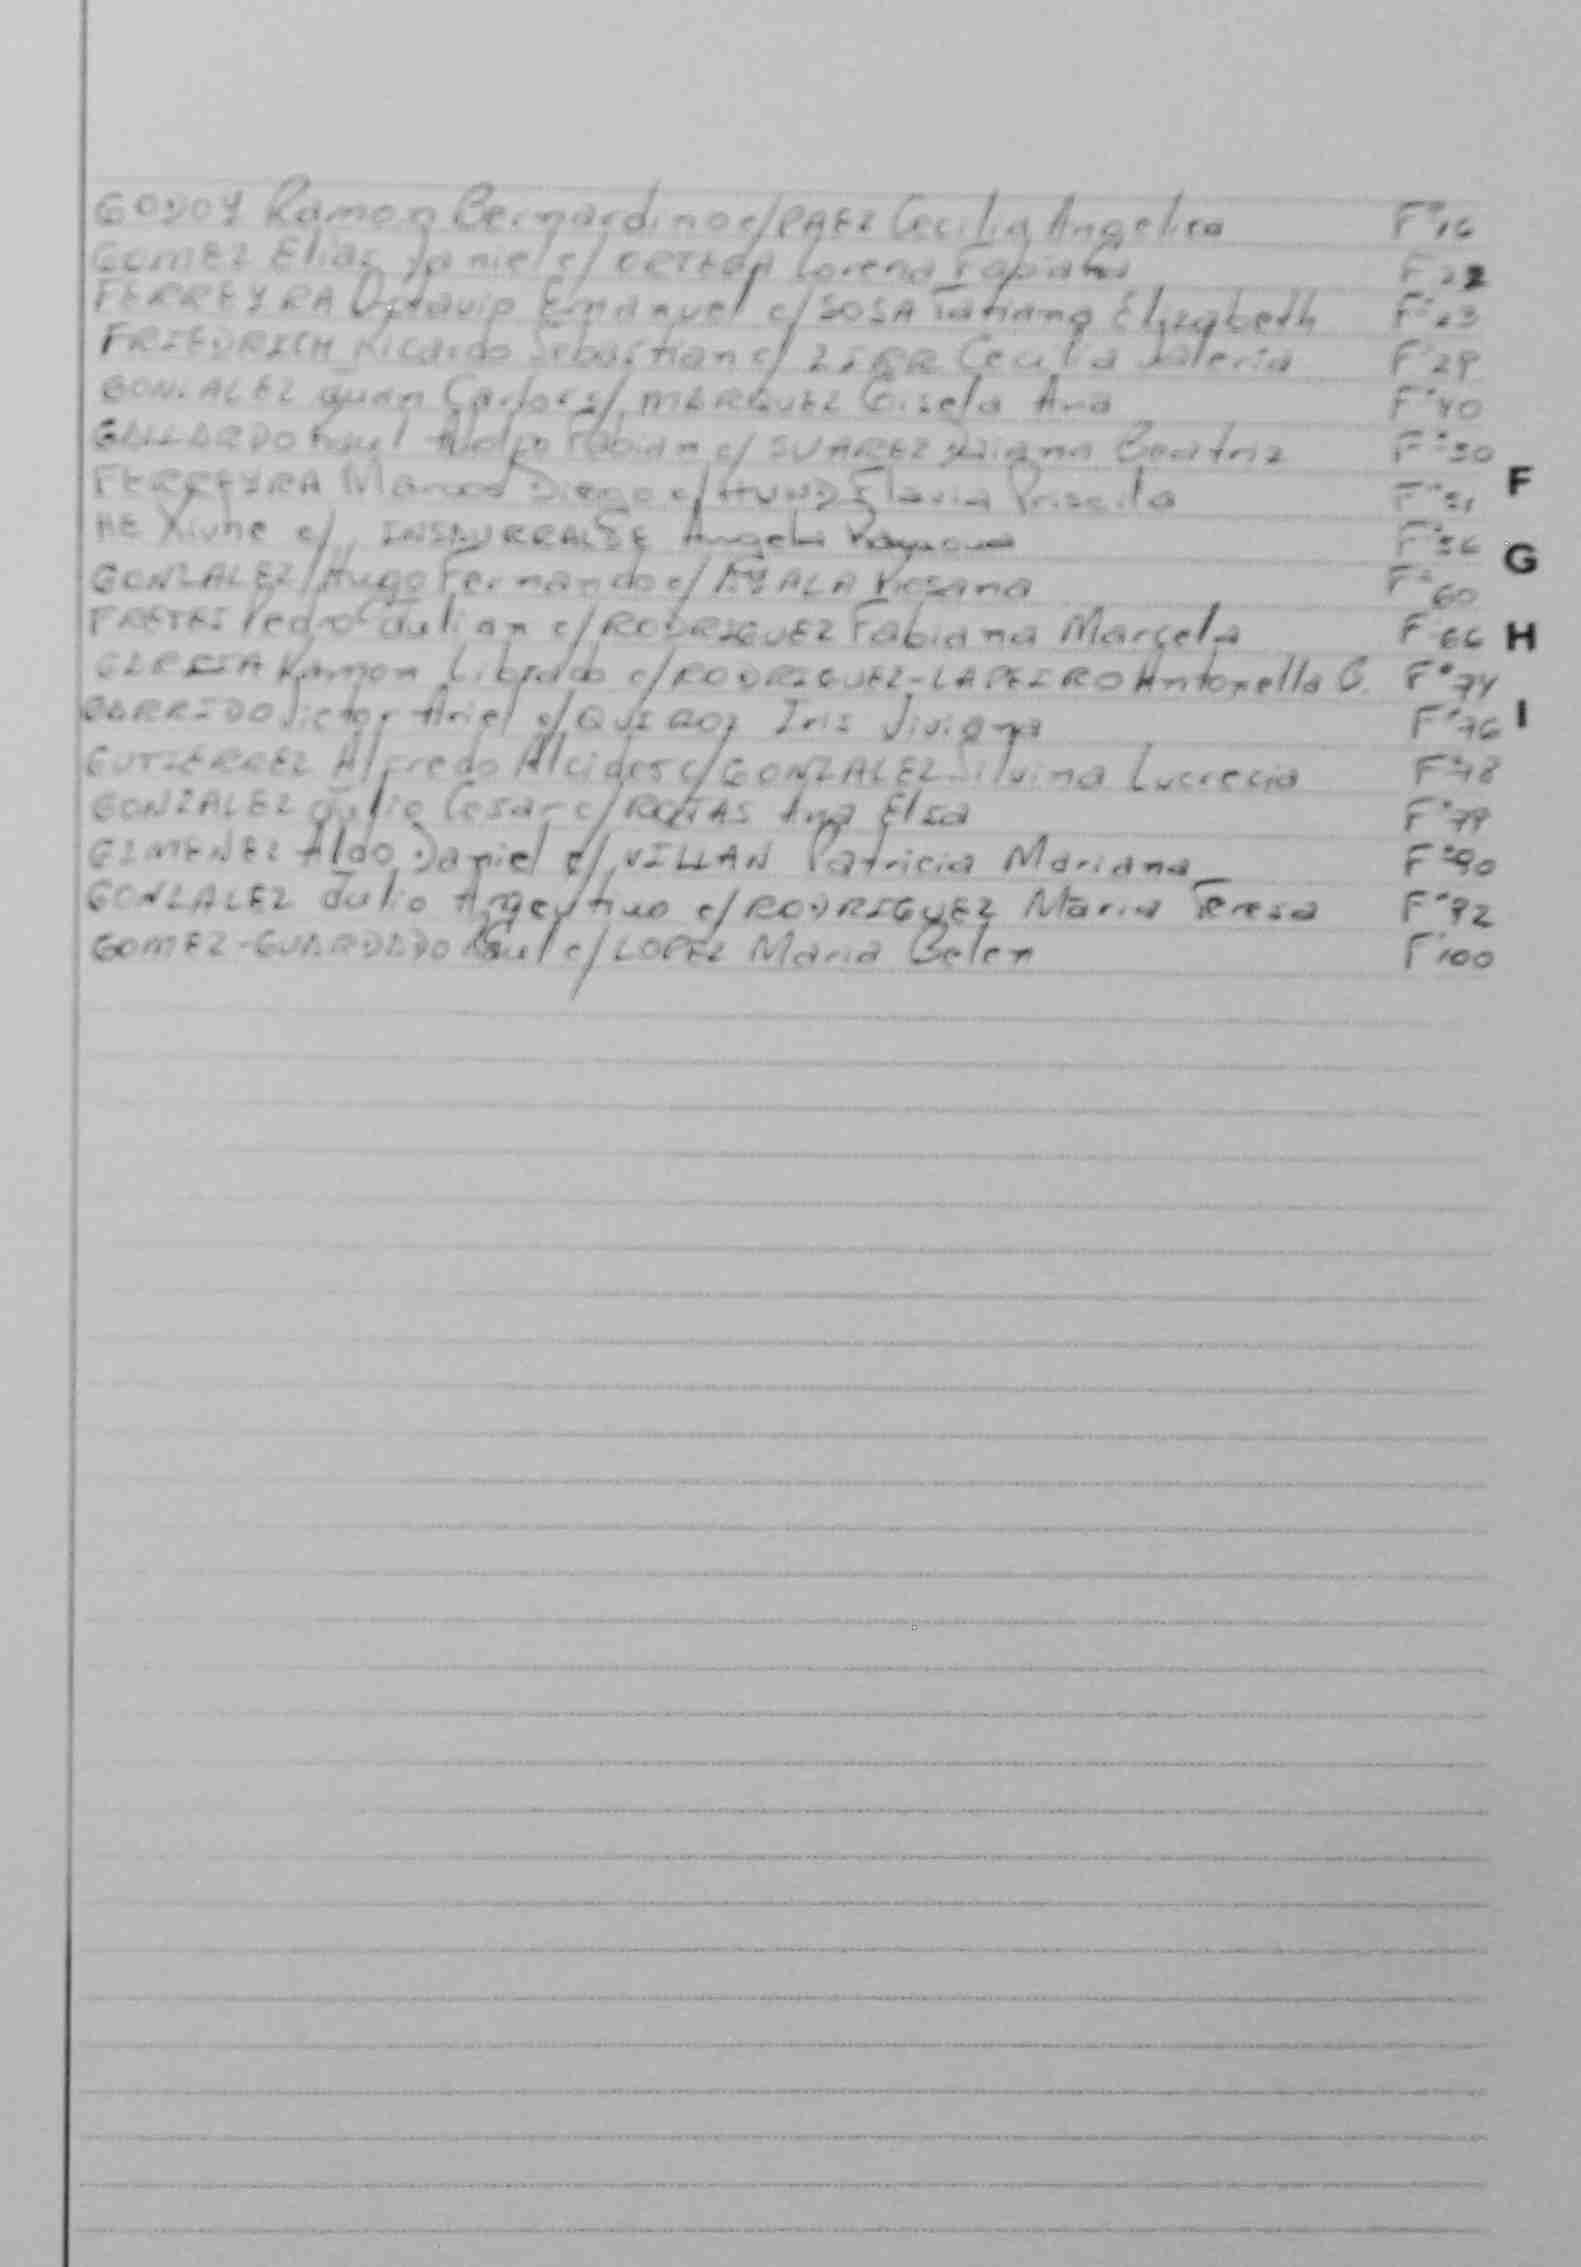 GODOY Ramon Bernardino c/ PAEZ Cecilia Angelica F°16
GOMEZ Elias Daniel c/ ORTEGA Lorena Fabiana F°22
FERREYRA Octavio Emanuel c/ SOSA Tatiana Elizabeth F°23
FRIEDRICH Ricardo Sebastian c/ Cecilia Valeria F°29
GONZALEZ Juan Carlos c/ MARQUEZ Gisela Ana F°40
GALLARDO Raul Adolfo Fabian c/ SUAREZ Beatriz F°50
FERREYRA Marcos Diego c/ HUND Flavia Priscila F°51
HE c/ INSAURRALDE Angela F°56
GONZALEZ Hugo Fernando c/ AYALA Rosana F°60
Pedro Julian c/ RODRIGUEZ Fabiana Marcela F°66
GARCIA Ramon Librado c/ RODRIGUEZ-LAPEIRO Antonella C. F°74
GARRIDO Victor Ariel c/ QUIROZ Iris Viviana F°76
GUTIERREZ Alfredo Alcides c/ GONZALEZ Silvina Lucrecia F°78
GONZALEZ Julio Cesar c/ ROJAS Ana Elsa F°79
GIMENEZ Aldo Daniel c/ VILLAN Patricia Mariana F°90
GONZALEZ Julio Argentino c/ RODRIGUEZ Maria Teresa F°92
GOMEZ-GUARDADO Raul c/ LOPEZ Maria Belen F°100
F
G
H
I